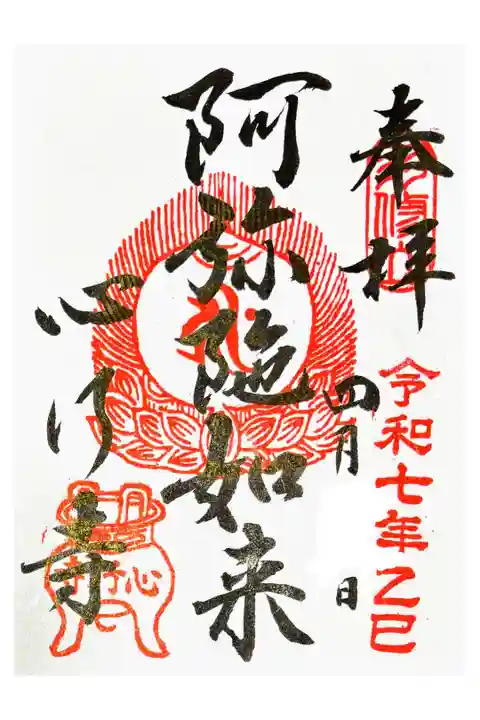 奉拝
令和七年乙巳
四月 日
阿弥陀如来
心行寺